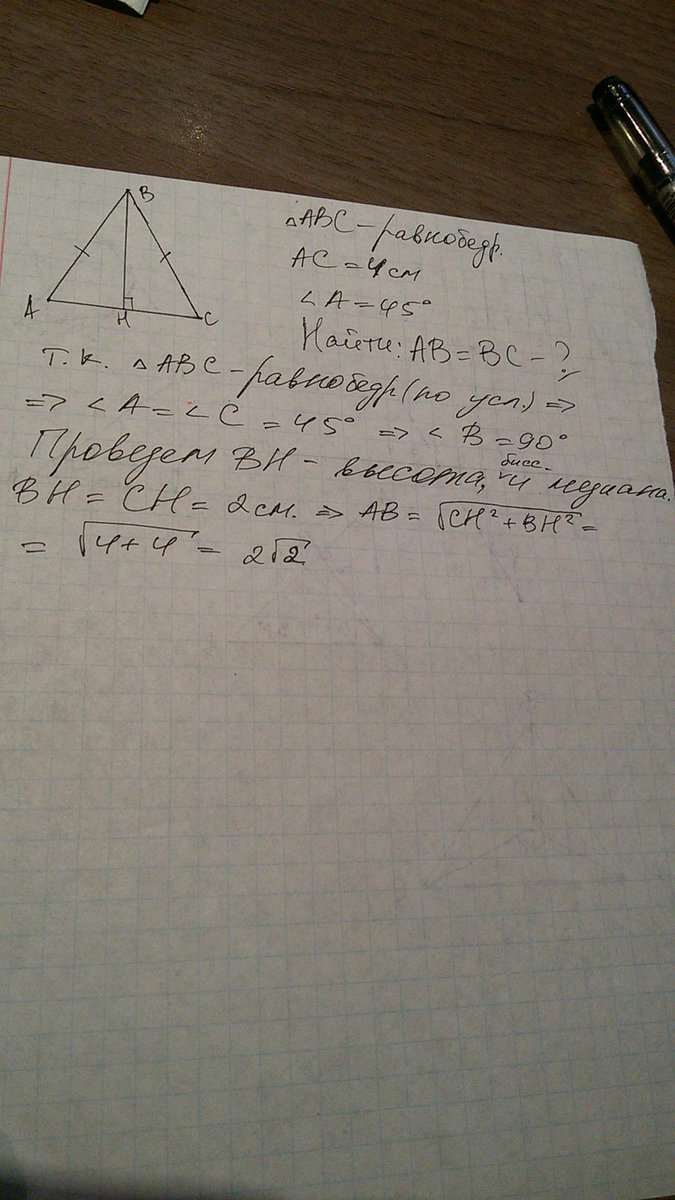 B
A
H
C
△ABC - равнобедр.
AC = 4 см
∠A = 45°
Найти: AB = BC - ?
Т.к. △ABC - равнобедр (по усл.) =>
=> ∠A = ∠C = 45° => ∠B = 90°
Проведем BH - высота, бисс. и медиана.
BH = CH = 2 см. => AB = √(CH² + BH²) =
= √(4+4) = 2√2